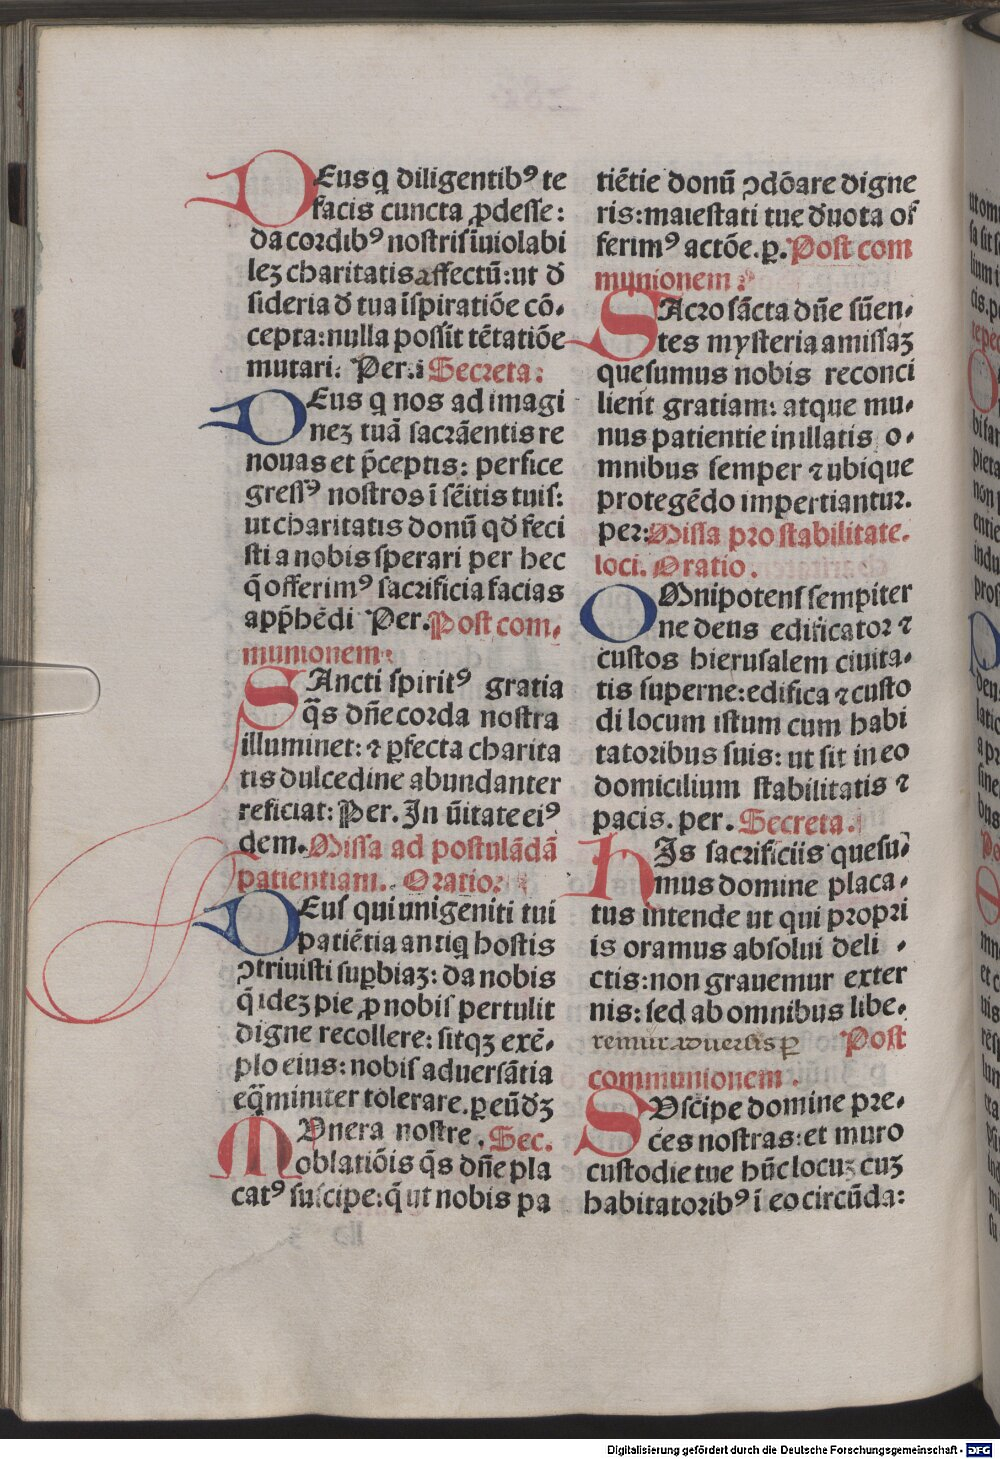 DEus q̄ diligentibꝰ te
facis cuncta ꝓdesse:
da cordibꝰ nostris iuiolabi
leʒ charitatis affectū: ut đ
sideria đ tua īspiratiōe cō-
cepta: nulla possīt tētatiōe
mutari. Per. i Secreta:
DEus q nos ad imagi
neʒ tuā sacrāentis re
nouas et p̄ceptis: perfice
gressꝰ nostros ī sēitis tuis:
ut charitatis donū qđ feci
sti a nobis sperari per hec
q̄ offerimꝰ sacrificia facias
app̄hēdi Per. Post com-
munionem:
SAncti spiritꝰ gratia
q̄s dn̄e corda nostra
illuminet: ⁊ ꝑfecta charita
tis dulcedine abundanter
reficiat: Per. In ūitate eiꝰ
dem. Missa ad postulādā
patientiam. Oratio:
DEus qui unigeniti tui
patiētia antiq hostis
ↄtriuisti suꝑbiaʒ: da nobis
q̄ ideʒ pie ꝓ nobis pertulit
digne recollere: sitqʒ exē-
plo eius: nobis aduersātia
eq̄nimiter tolerare. ꝑ eūđʒ
MUnera nostre. Sec.
oblatiōis q̄s dn̄e pla
catꝰ suscipe: q̄ ut nobis pa
tiētie donū ↄdōare digne
ris: maiestati tue đuota of
ferimꝰ actōe. ꝑ. Post com
munionem:
SAcro sācta dn̄e sūen-
tes mysteria amissaʒ
quesumus nobis reconci
lient gratiam: atque mu-
nus patientie in illatis o-
mnibus semper ⁊ ubique
protegēdo impertiantur.
per: Missa pro stabilitate.
loci. Oratio.
OMnipotens sempiter
ne deus edificator ⁊
custos hierusalem ciuita-
tis superne: edifica ⁊ custo
di locum istum cum habi
tatoribus suis: ut sit in eo
domicilium stabilitatis ⁊
pacis. per. Secreta.
HIs sacrificiis quesu-
mus domine placa-
tus intende ut qui propri
is oramus absolui deli -
ctis: non grauemur exter
nis: sed ab omnibus libe-
remur aduersis ꝑ Post
communionem.
SUscipe domine pre-
ces nostras: et muro
custodie tue hūc locuʒ cuʒ
habitatoribꝰ ī eo circūda:
Digitalisierung gefördert durch die Deutsche Forschungsgemeinschaft - DFG